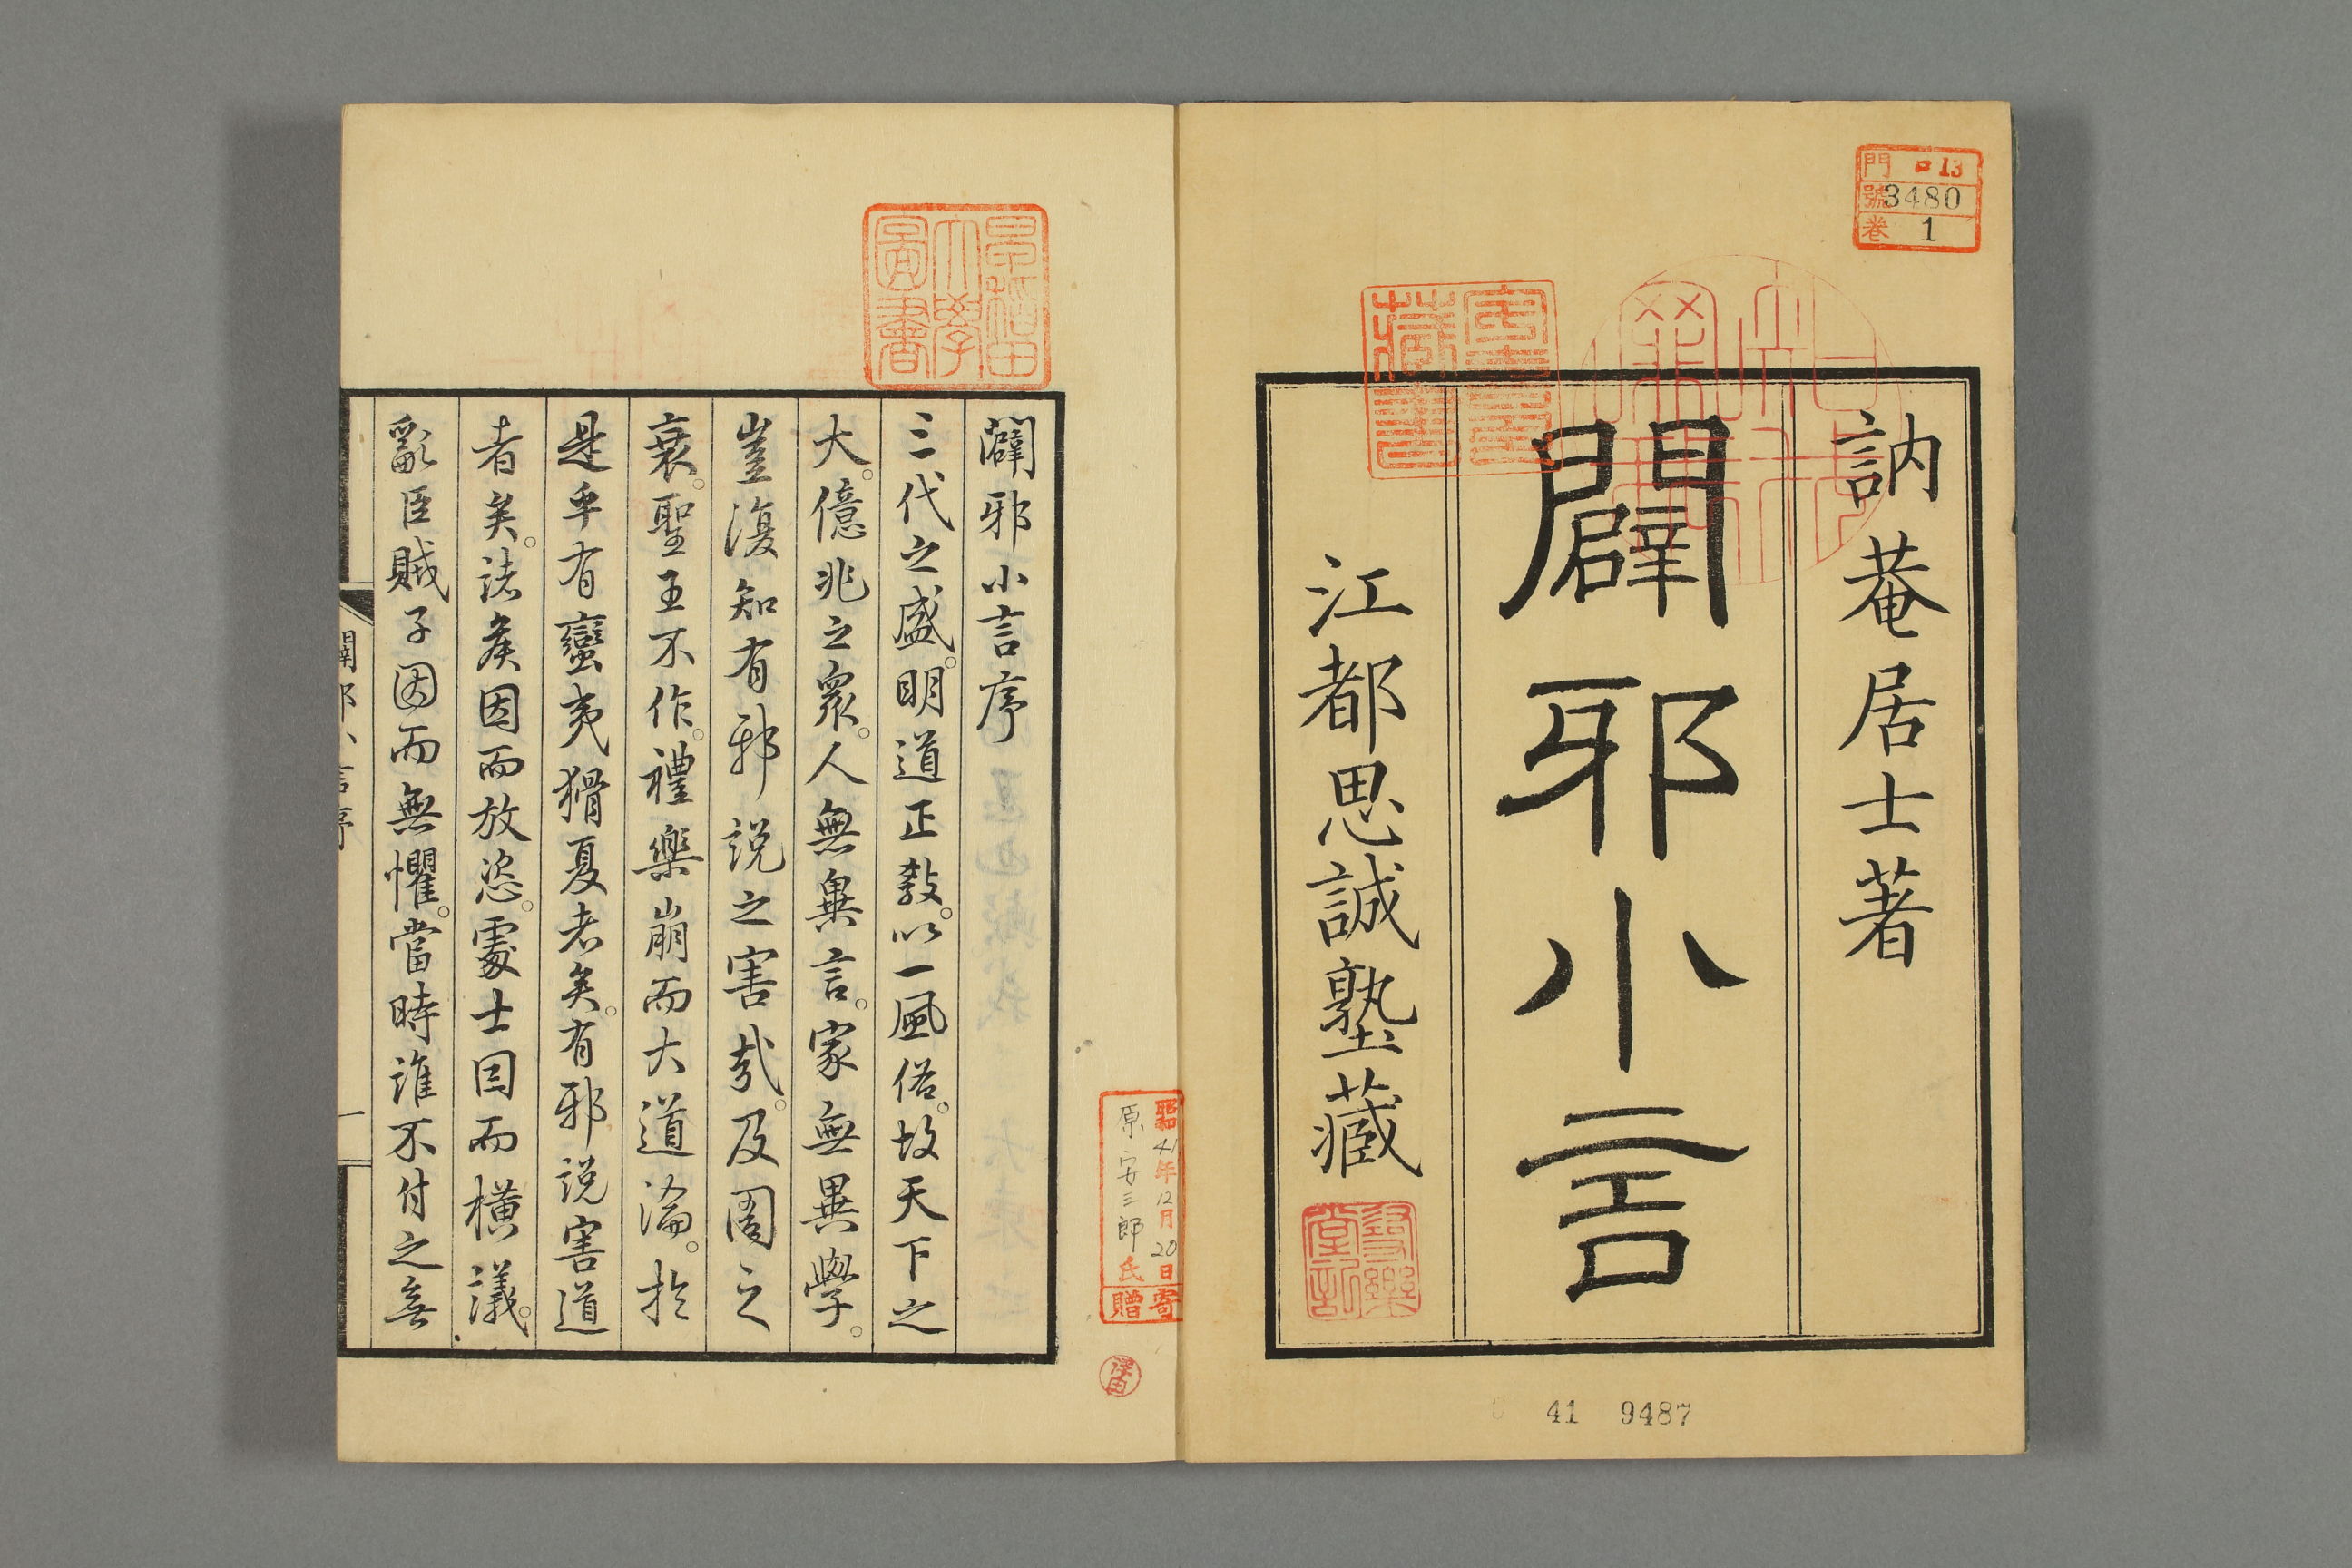 門 ロ13
號 3480
卷 1
訥菴居士著
闢邪小言
江都思誠塾藏
41 9487
昭和41年12月20日寄
原安三郎氏贈
早稲田
大學
圖書
闢邪小言序
三代之盛。明道正教。以一風俗。故天下之
大。億兆之衆。人無異言。家無異學。
豈復知有邪說之害哉。及周之
衰。聖王不作。禮樂崩而大道淪。於
是乎有蠻夷猾夏者矣。有邪說害道
者矣。諸矦因而放恣。處士因而橫議。
亂臣賊子因而無懼。當時誰不付之無
闢邪小言序
一